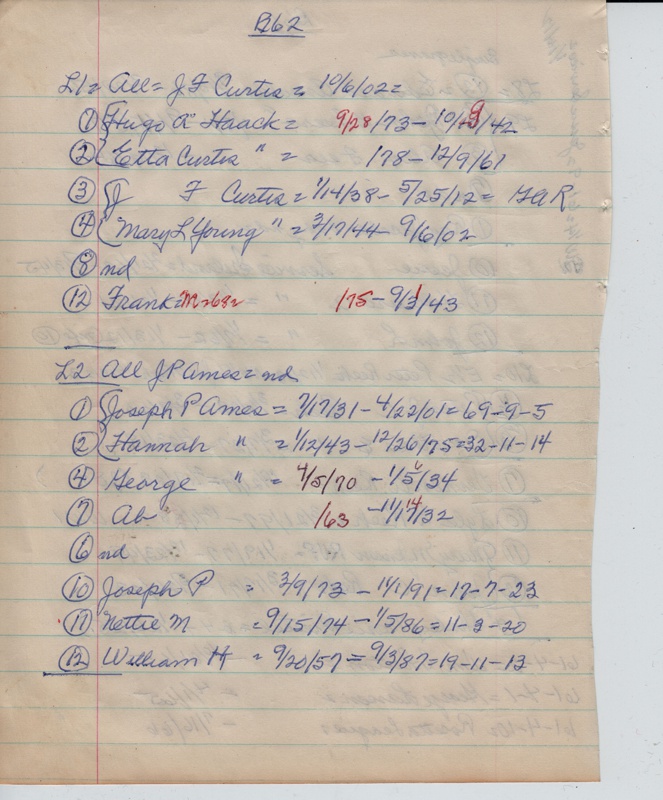 B62
L1 = All = J F Curtis = 10/6/02 =
① Hugo A Haack = 9/28/73 - 10/9/42
② Etta Curtis " = /78 - 12/9/61
③ J F Curtis = 1/14/38 - 5/25/12 = GAR
④ Mary L Young " = 2/17/44 - 9/6/02
⑧ nd
⑫ Frank = /75 - 9/3/43
L2 All J P Ames = nd
① Joseph P Ames = 7/17/31 - 4/22/01 = 69-9-5
② Hannah " = 1/12/43 - 12/26/75 = 32-11-14
④ George " = 4/5/70 - 1/5/34
⑦ Ab /63 - 11/14/32
⑥ nd
⑩ Joseph P = 3/9/73 - 11/1/91 = 17-7-23
⑪ Nettie M = 9/15/74 - 1/5/86 = 11-3-20
⑫ William H = 9/20/57 = 9/3/87 = 19-11-13